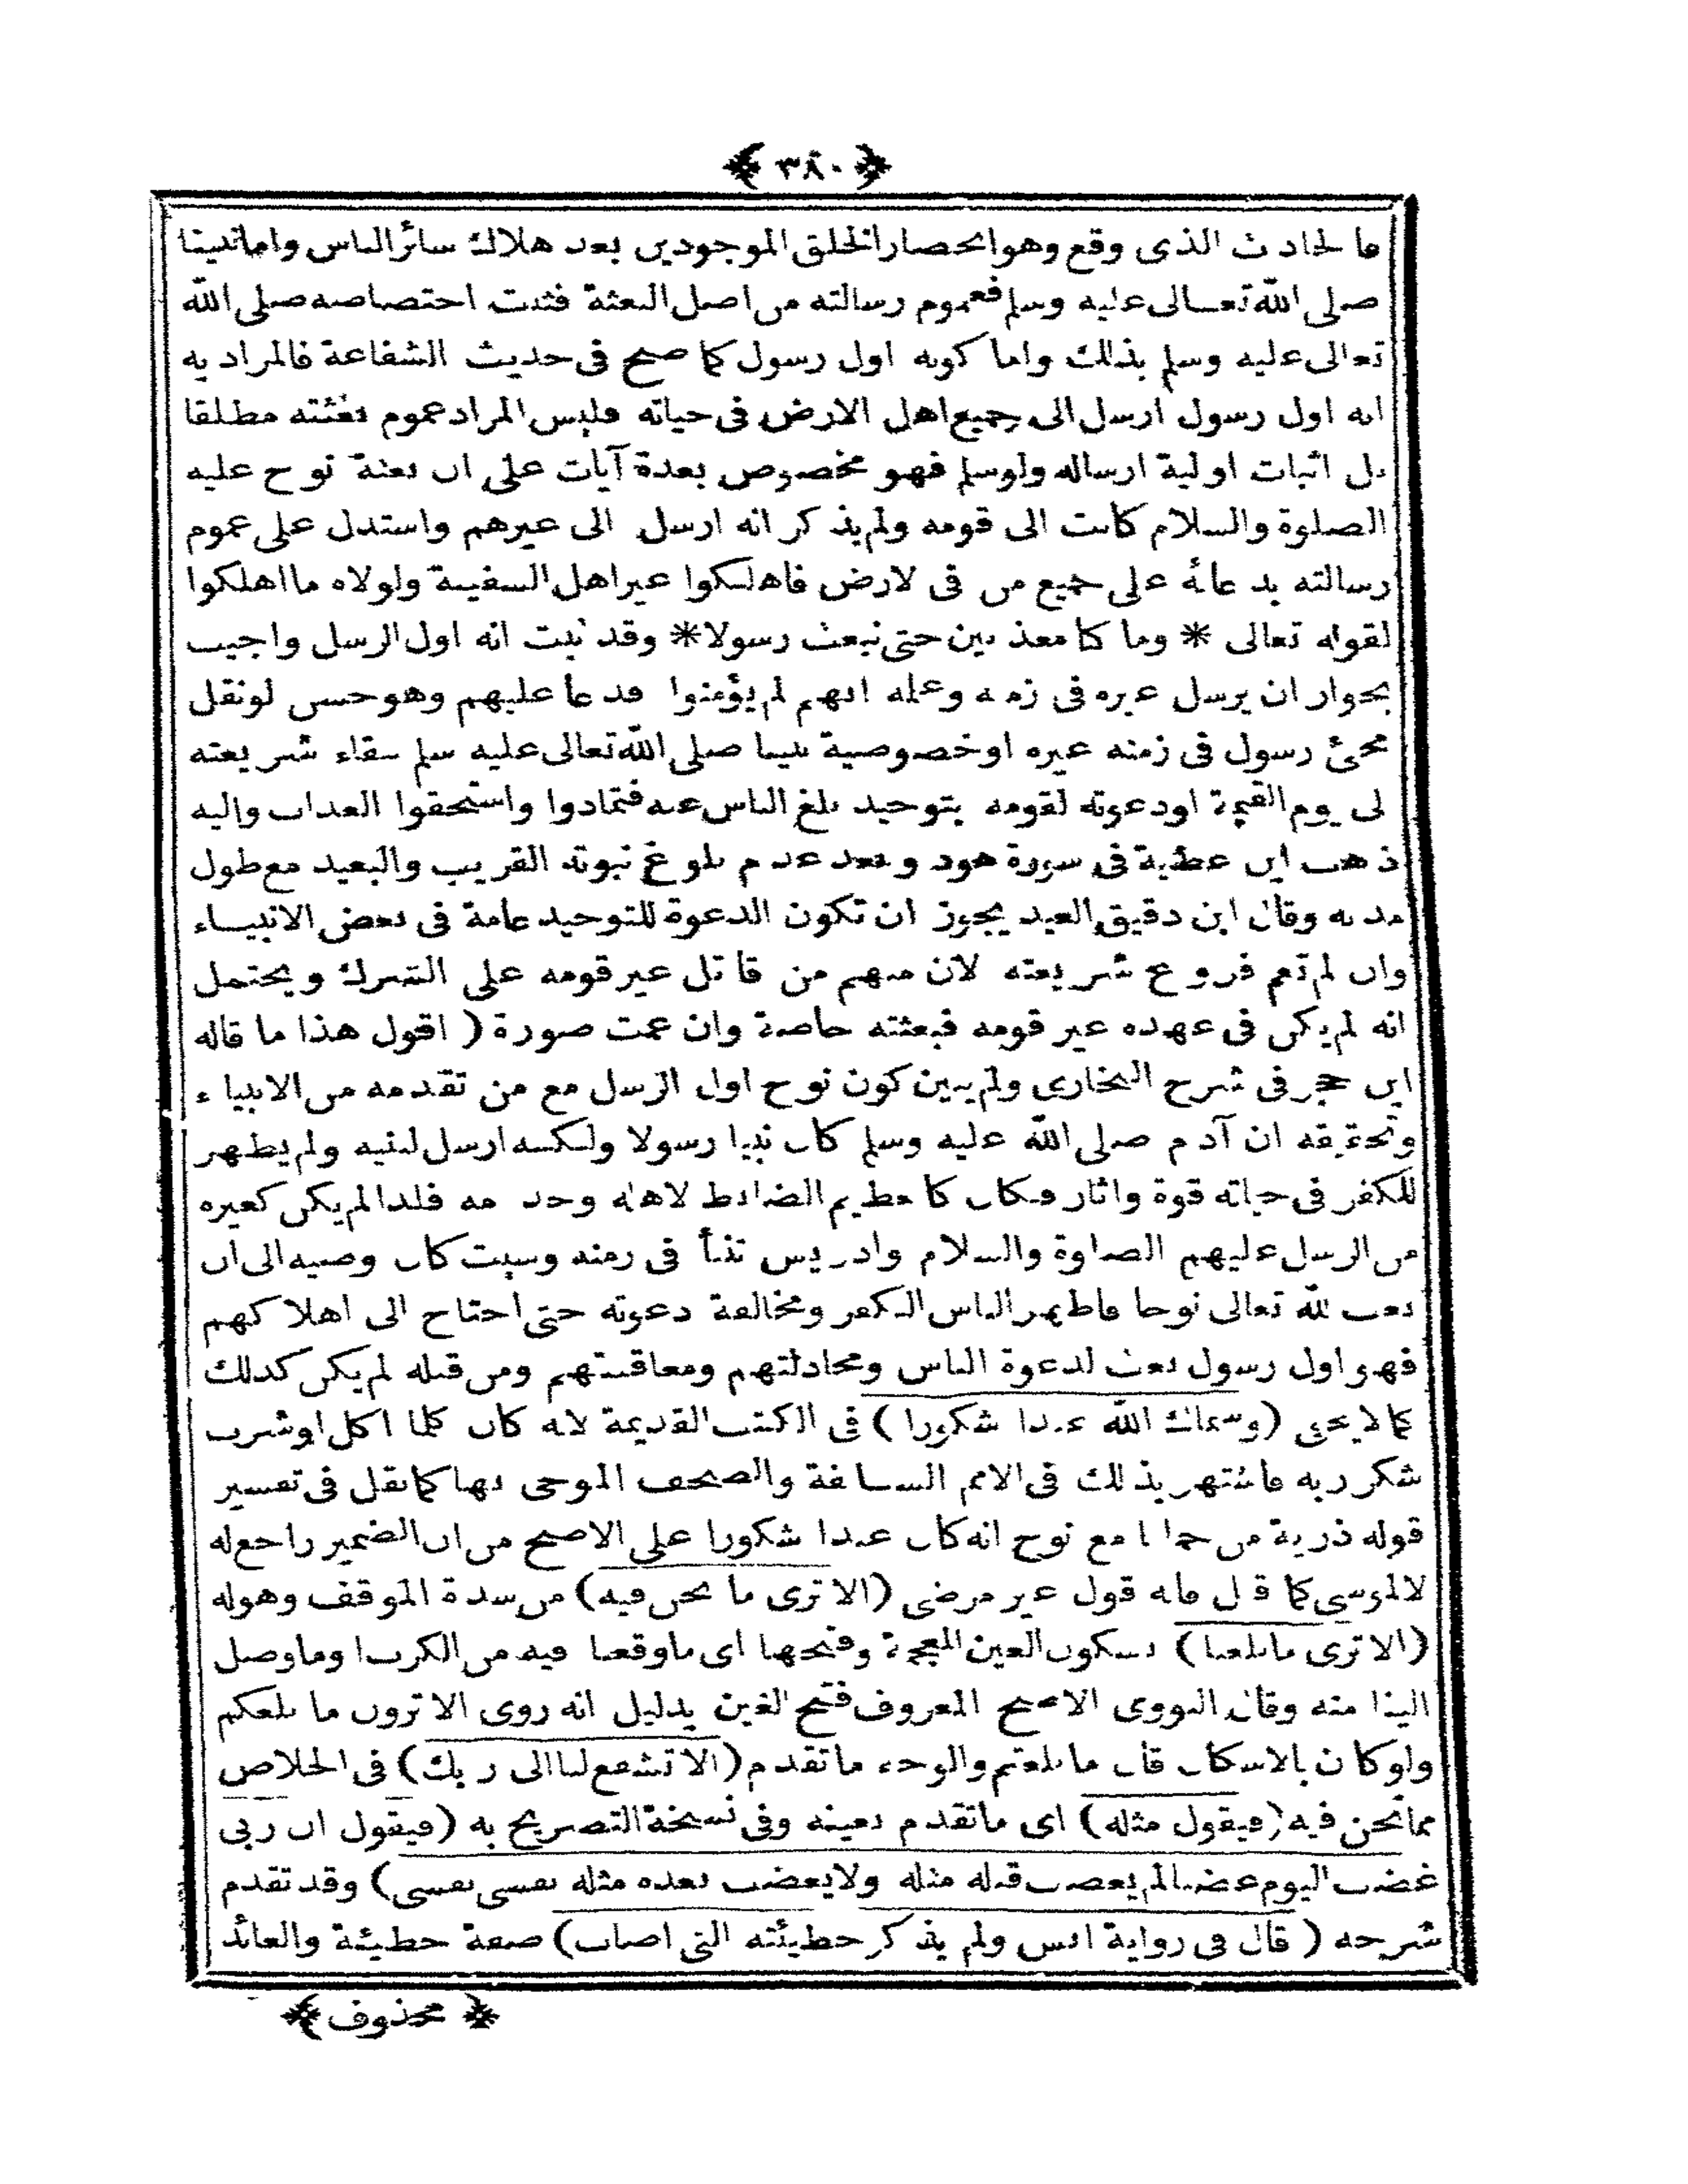 ﴿٣٨٠﴾
بالحادث الذى وقع وهو انحصار الخلق الموجودين بعد هلاك سائر الناس واما نبينا
صلى الله تعالى عليه وسلم فعموم رسالته من اصل البعثة فثبت اختصاصه صلى الله
تعالى عليه وسلم بذلك واما كونه اول رسول كما صح فى حديث الشفاعة فالمراد به
انه اول رسول ارسل الى جميع اهل الارض فى حياته فليس المراد عموم بعثته مطلقا
بل اثبات اولية ارساله ولو سلم فهو مخصوص بعدة آيات على ان بعثة نوح عليه
الصلوة والسلام كانت الى قومه ولم يذكر انه ارسل الى غيرهم واستدل على عموم
رسالته بدعائه على جميع من فى لارض فاهلكوا غير اهل السفينة ولولاه ما اهلكوا
لقوله تعالى * وما كنا معذبين حتى نبعث رسولا * وقد ثبت انه اول الرسل واجيب
بجواز ان يرسل غيره فى زمنه وعلمه انهم لم يؤمنوا فدعا عليهم وهو حسن لو نقل
مجئ رسول فى زمنه غيره او خصوصية نبينا صلى الله تعالى عليه سلم ببقاء شريعته
لى يوم القيمة او دعوته لقومه بتوحيد بلغ الناس عنه فتمادوا واستحقوا العذاب واليه
ذهب ابن عطية فى سورة هود وبعد عدم بلوغ نبوته القريب والبعيد مع طول
مدته وقال ابن دقيق العيد يجوز ان تكون الدعوة للتوحيد عامة فى بعض الانبياء
وان لم تعم فروع شريعته لان منهم من قاتل غير قومه على الشرك ويحتمل
انه لم يكن فى عهده غير قومه فبعثته خاصة وان عمت صورة ( اقول هذا ما قاله
ابن حجر فى شرح البخارى ولم يبين كون نوح اول الرسل مع من تقدمه من الانبياء
وتحقيقه ان آدم صلى الله عليه وسلم كان نبيا رسولا ولكنه ارسل لبنيه ولم يظهر
للكفر فى حياته قوة واثار فكان كالعظيم الضابط لاهله وحدمه فلذا لم يكن كغيره
من الرسل عليهم الصلوة والسلام وادريس تنبأ فى زمنه وشيث كان وصيه الى ان
بعث لله تعالى نوحا فاظهر الناس الكفر ومخالفة دعوته حتى احتاج الى اهلاكهم
فهو اول رسول بعث لدعوة الناس ومجادلتهم ومعاقبتهم ومن قبله لم يكن كذلك
كما لا يخفى (وسماك الله عبدا شكورا) فى الكتب القديمة لانه كان كلما اكل او شرب
شكر ربه فاشتهر بذلك فى الامم السالفة والصحف الموحى بها كما نقل فى تفسير
قوله ذرية من حملنا مع نوح انه كان عبدا شكورا على الاصح من ان الضمير راجع له
لا لموسى كما قيل فانه قول غير مرضى (الا ترى ما نحن فيه) من شدة الموقف وهوله
(الا ترى ما بلغنا) بسكون الغين المعجمة وفتحها اى ما وقعنا فيه من الكرب وما وصل
الينا منه وقال النووى الاصح المعروف فتح الغين بدليل انه روى الا ترون ما بلغكم
ولو كان بالاسكان قال ما بلغتم والوجه ما تقدم (الا تشفع لنا الى ربك) فى الخلاص
مما نحن فيه (فيقول مثله) اى ما تقدم بعينه وفى نسخة التصريح به (فيقول ان ربى
غضب اليوم غضبا لم يغضب قبله مثله ولا يغضب بعده مثله نفسى نفسى) وقد تقدم
شرحه ( قال فى رواية انس ولم يذكر خطيئته التى اصاب) صفة خطيئة والعائد
﴿ محذوف ﴾